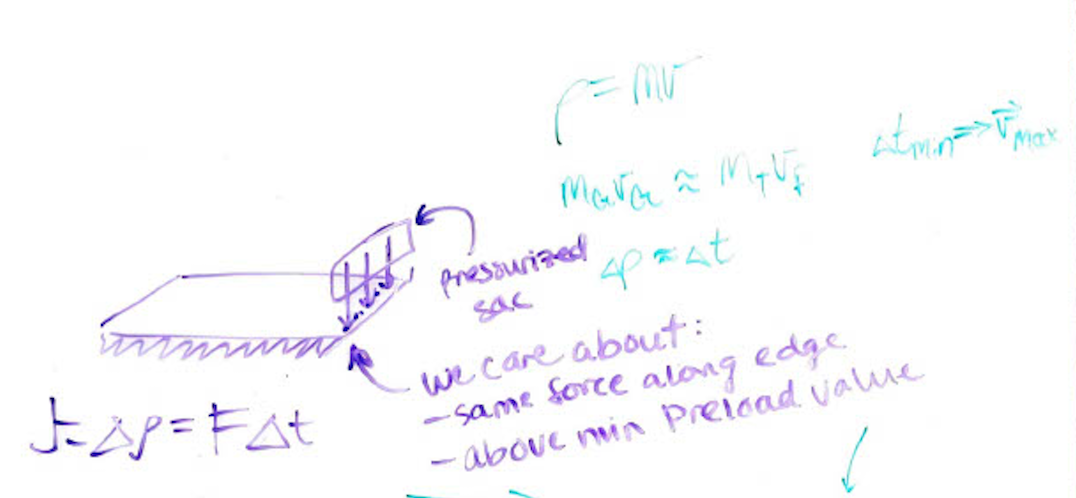 p = mv
Δt min ⇒ v⃗ max
Δp ≈ Δt
pressurized
sac
we care about:
- same force along edge
- above min preload value
J = Δp = FΔt